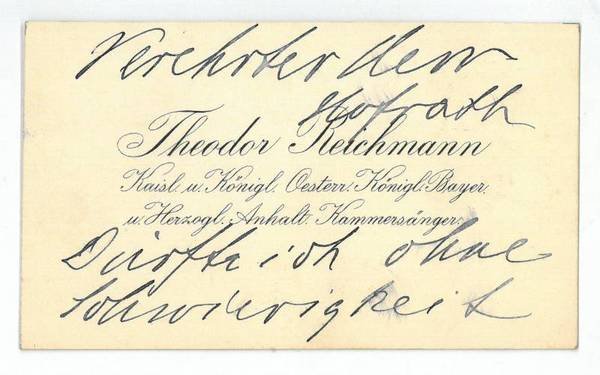 Verehrter Herr
Hofrath
Theodor Reichmann
Kaisl. u. Königl. Oesterr. Königl. Bayer.
u. Herzogl. Anhalt. Kammersänger.
Dürfte ich ohne
Schwierigkeit